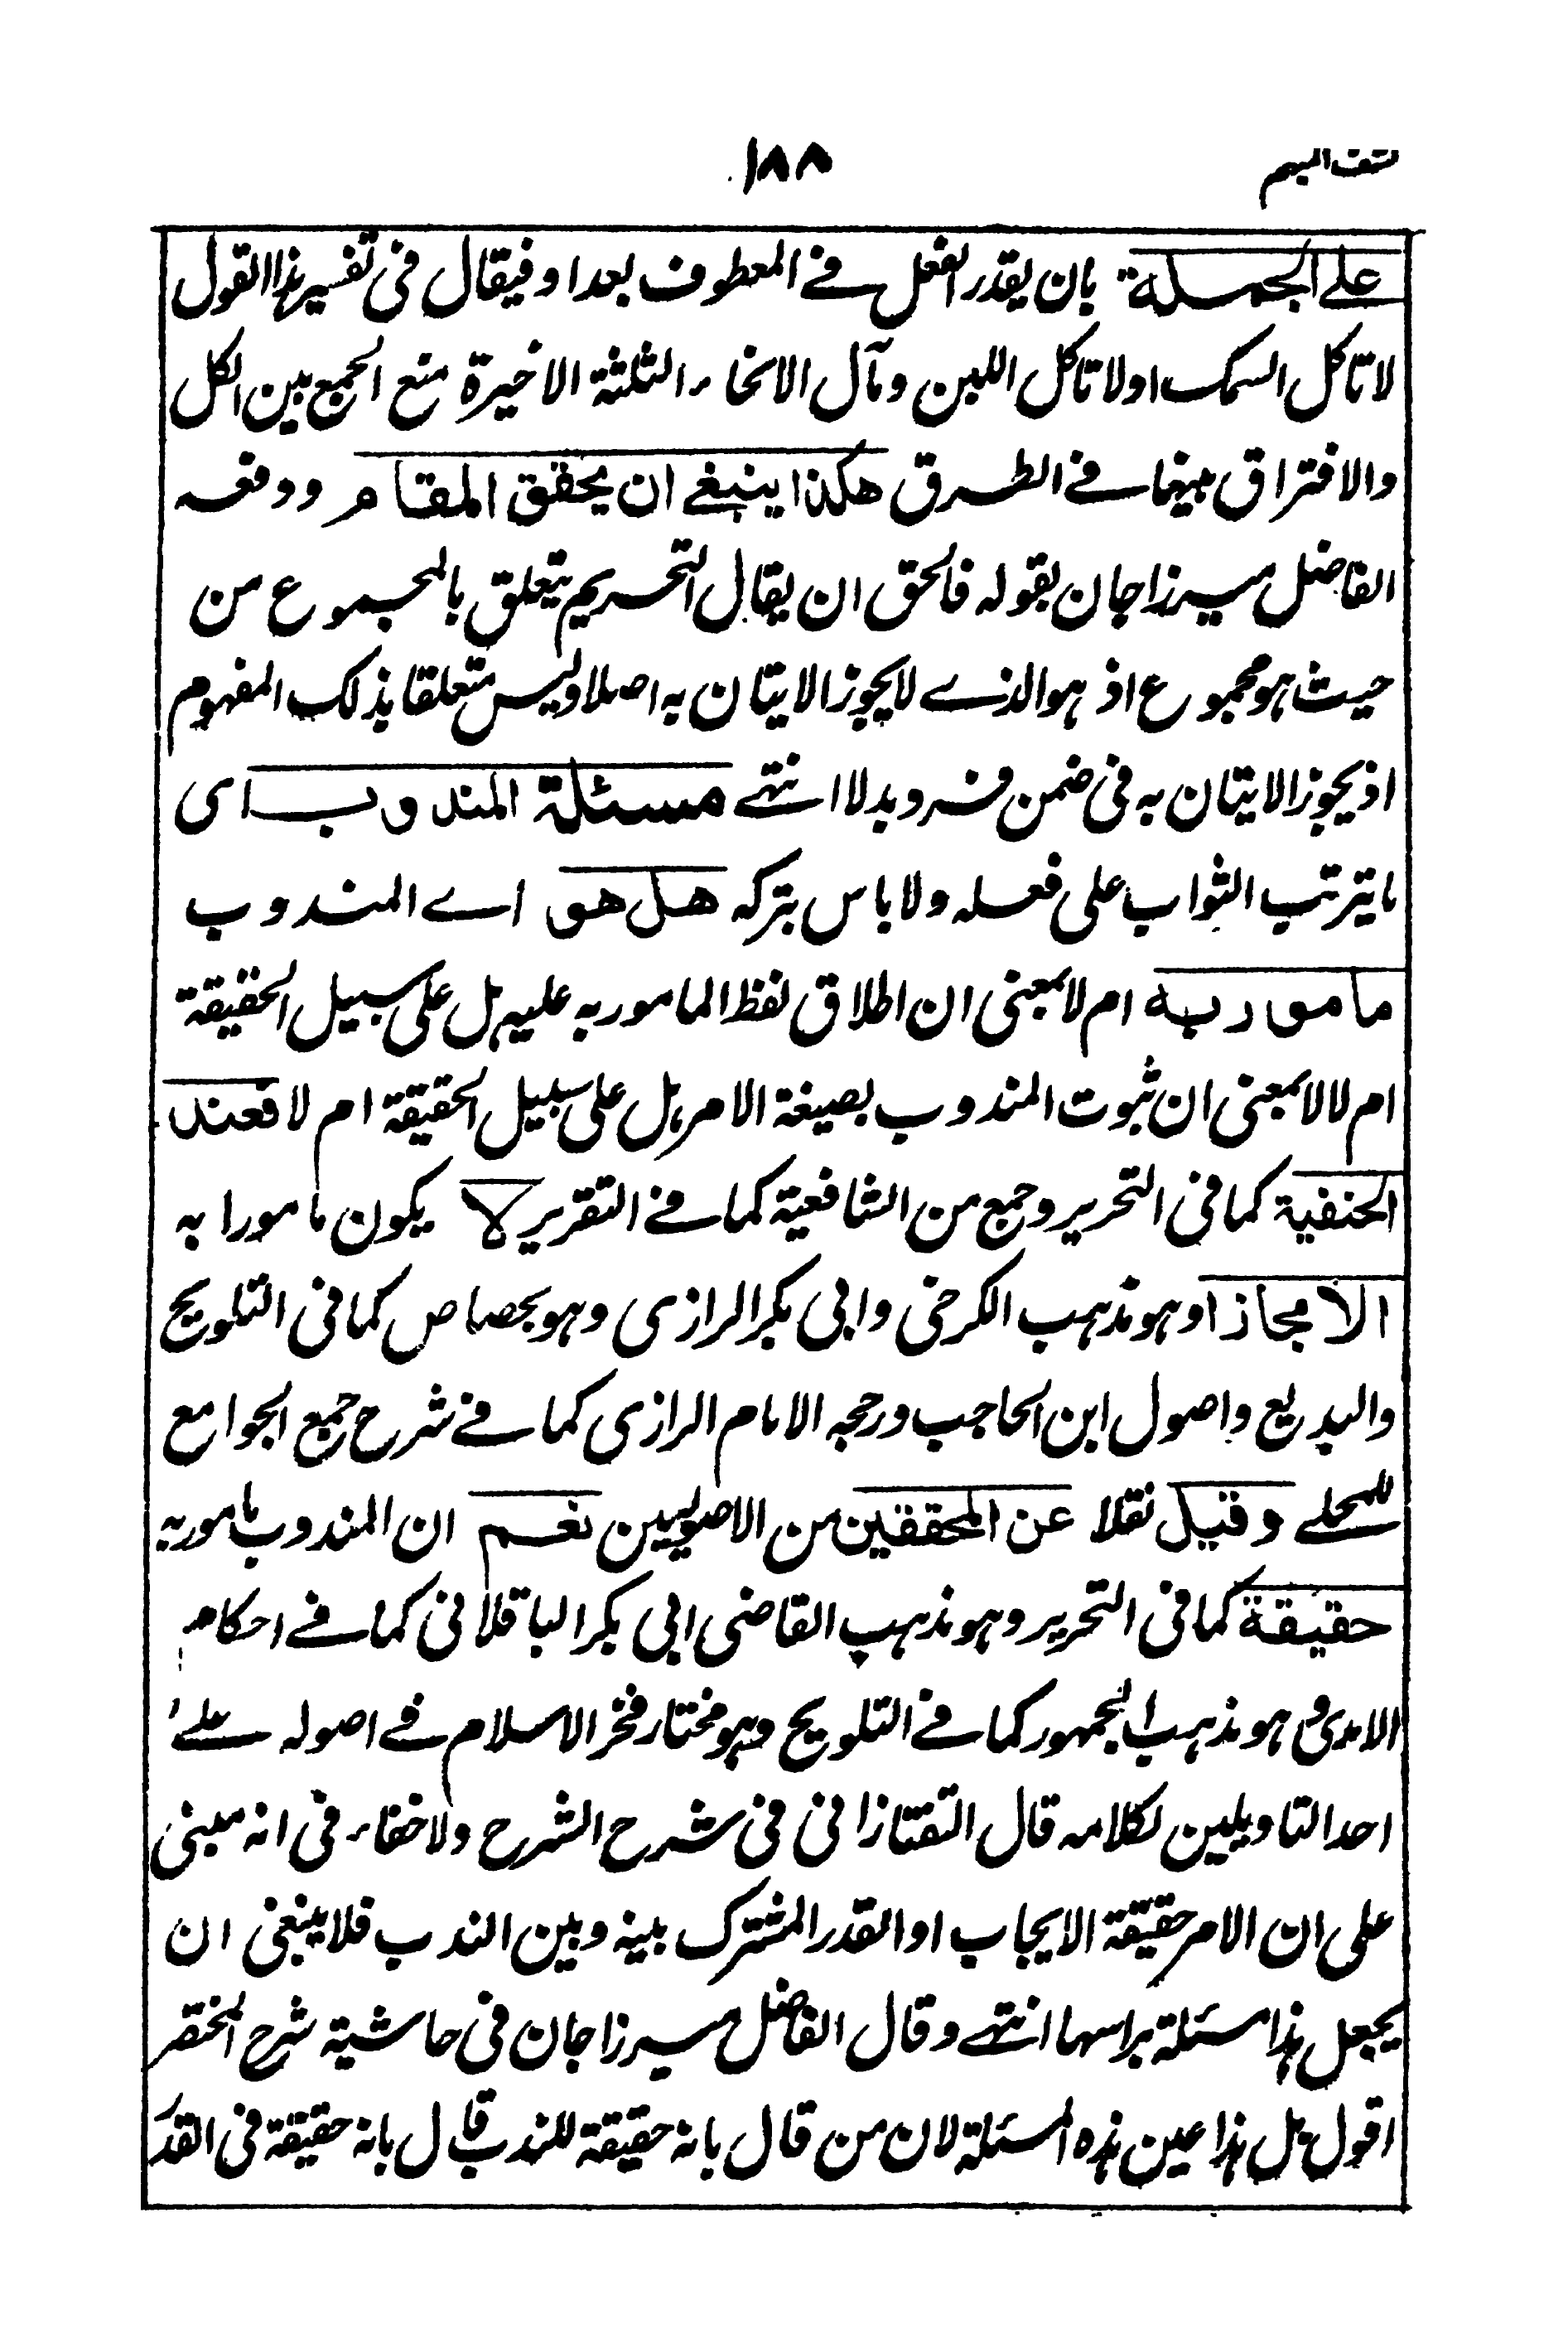 كشف المبهم
١٨٨
على الجملة بان يقدر الفعل فے المعطوف بعد او فيقال فى تفسير هذا القول
لا تاكل السمك او لا تاكل اللبن ومآل الانحاء الثلثة الاخيرة منع الجمع بين الكل
والافتراق بينها فے الطرق هكذا ينبغے ان يحقق المقام ودفعه
الفاضل ميرزا جان بقوله فالحق ان يقال التحريم يتعلق بالمجموع من
حيث هو مجموع اذ هو الذے لا يجوز الاتيان به اصلا وليس متعلقا بذلك المفهوم
اذ يجوز الاتيان به فى ضمن فرد بدلا انتهے مسئلة المندوب اى
ما يترتب الثواب على فعله ولا باس بتركه هل هو اے المندوب
مامور به ام لا بمعنى ان اطلاق لفظ المامور به عليه هل على سبيل الحقيقة
ام لا لا بمعنى ان ثبوت المندوب بصيغة الامر هل على سبيل الحقيقة ام لا فعند
الحنفية كما فى التحرير وجمع من الشافعية كما فے التقرير لا يكون مامورا به
الا مجازا وهو مذهب الكرخى وابى بكر الرازى وهو بجصاص كما فى التلويح
والبديع واصول ابن الحاجب ورجحه الامام الرازى كما فے شرح جمع الجوامع
للمحلے وقيل نقلا عن المحققين من الاصوليين نعم ان المندوب مامور به
حقيقة كما فى التحرير وهو مذهب القاضى ابى بكر الباقلانى كما فے احكام
الامدى وهو مذهب الجمهور كما فے التلويح وهو مختار فخر الاسلام فے اصوله علے
احد التاويلين لكلامه قال التفتازانى فى شرح الشرح ولا خفاء فى انه مبنى
على ان الامر حقيقة الايجاب او القدر المشترك بينه وبين الندب فلا ينبغى ان
يجعل هذا مسئلة براسها انتهے وقال الفاضل ميرزا جان فى حاشية شرح المختصر
اقول بل هذا عين هذه المسئلة لان من قال بانه حقيقة للندب قال بانه حقيقة فى القدر